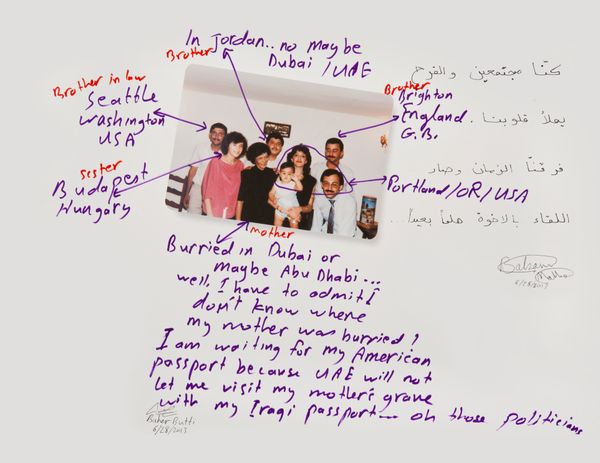 In Jordan.. no maybe
Dubai / UAE
Brother
Brother in law
Seattle
Washington
USA
Brother
Brighton
England
G.B.
sister
Budapest
Hungary
Portland/OR/USA
mother
Burried in Dubai or
maybe Abu Dhabi...
well, I have to admit I
don't know where
my mother was burried?
I am waiting for my American
passport because UAE will not
let me visit my mother's grave
with my Iraqi passport — oh those politicians
Baher Butti
6/28/2013
كنّا مجتمعين والفرح
يملأ قلوبنا.
فرقنّا الزمان وصار
اللقاء بالاخوة حلماً بعيداً...
6/28/2013